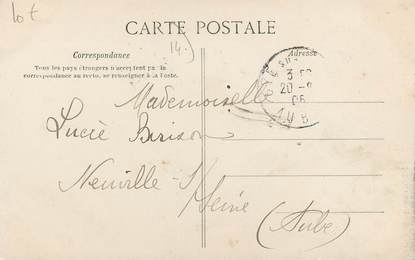 lot
CARTE POSTALE
14.)
Correspondance
Adresse
Tous les pays étrangers n'acceptent pas la
correspondance au recto, se renseigner à la Poste.
3
20 - 8
06
AUB
Mademoiselle
Lucie
Neuville-s/
Seine
(Aube)